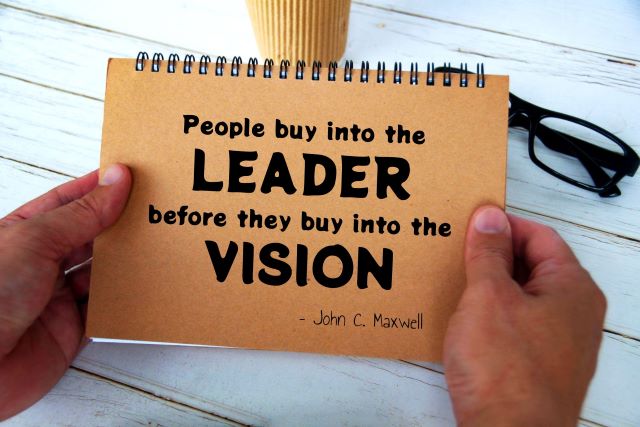 People buy into the
LEADER
before they buy into the
VISION
- John C. Maxwell